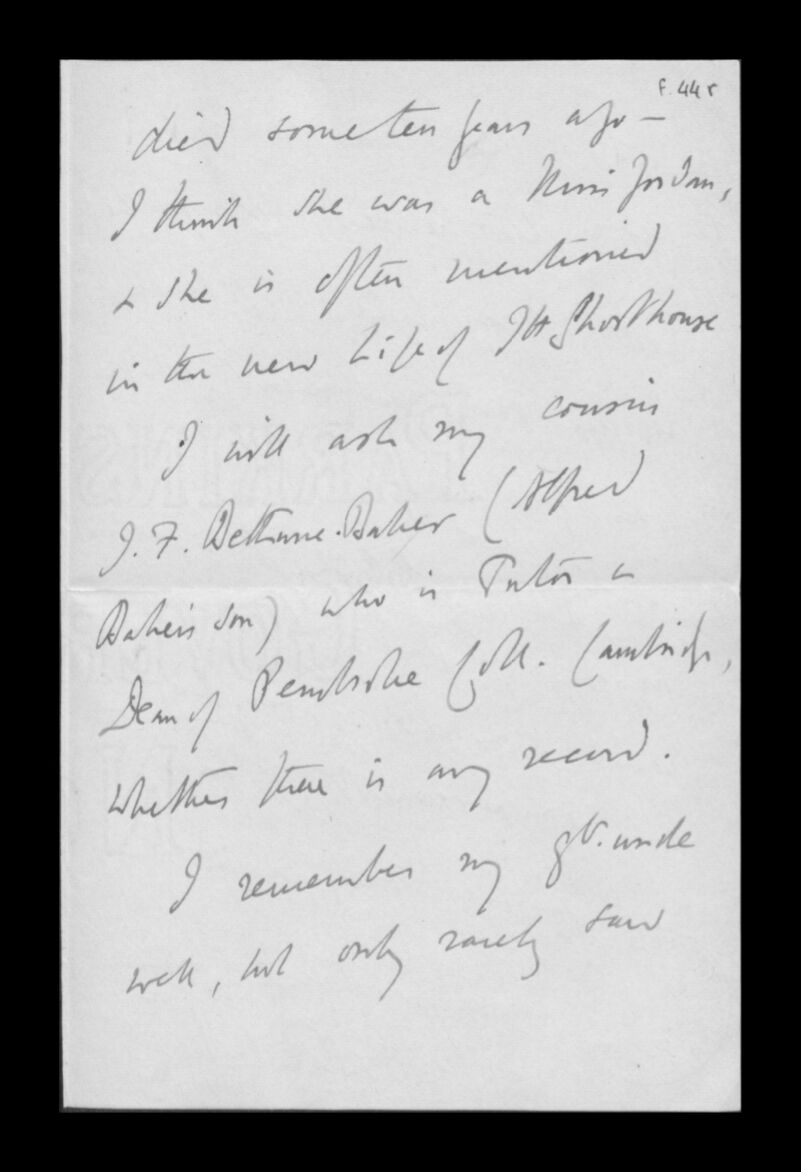 f. 44 r
died some ten years ago —
I think she was a Miss Jordan,
& she is often mentioned
in the new Life of JH Shorthouse
I will ask my cousin
J. F. Bethune-Baker (Alfred
Baker's son) who is Tutor &
Dean of Pembroke Coll. Cambridge,
whether there is any record.
I remember my gt. uncle
well, but only rarely saw